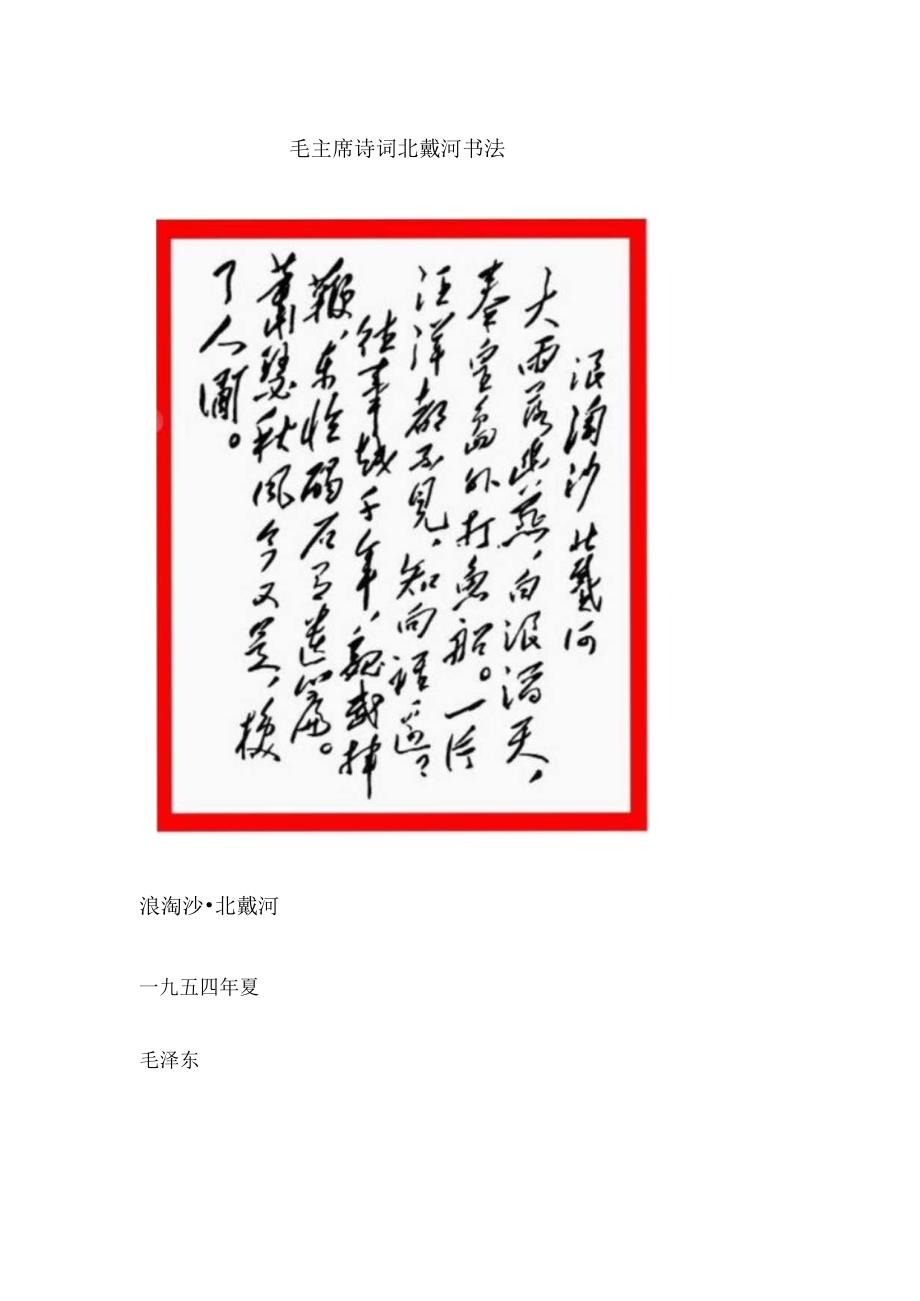 毛主席诗词北戴河书法
浪淘沙 北戴河
大雨落幽燕,白浪滔天,
秦皇島外打魚船。一片
汪洋都不見,知向誰邊?
往事越千年,魏武揮
鞭,东临碣石有遗篇。
蕭瑟秋風今又是,換
了人间。
浪淘沙•北戴河
一九五四年夏
毛泽东